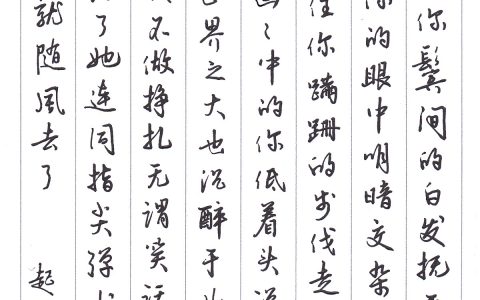 你鬓间的白发抚
你的眼中明暗交杂
住你蹒跚的步伐走
画々中的你低着头说
世界之大也沉醉于
不做挣扎无谓笑话
了她连同指尖弹
就随风去了
起